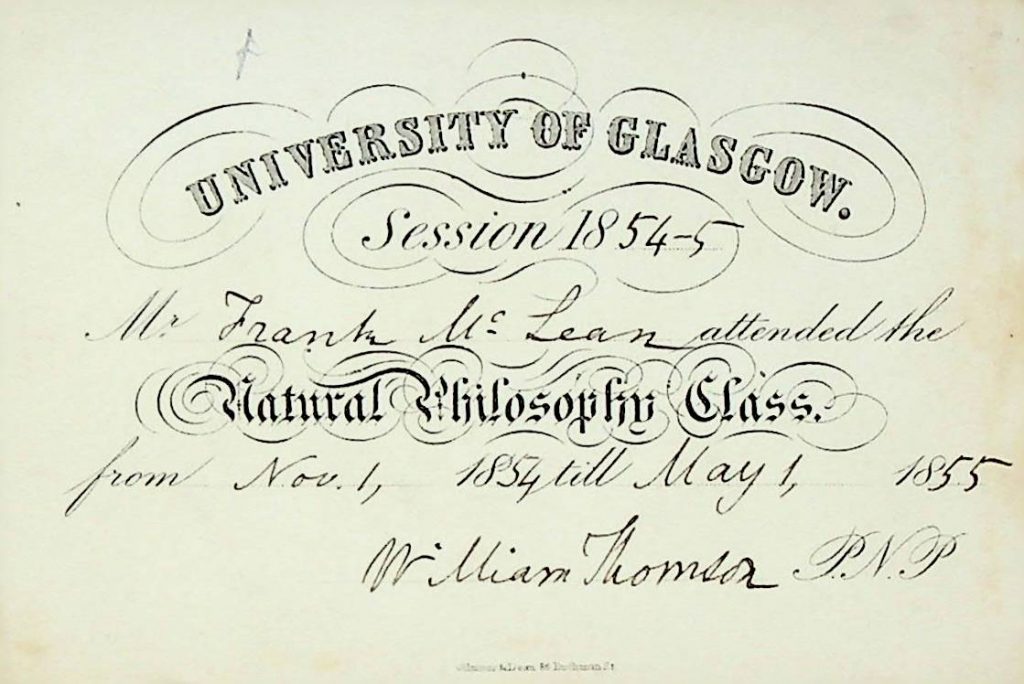 UNIVERSITY OF GLASGOW.
Session 1854-5
Mr Frank Mc Lean attended the
Natural Philosophy Class.
from Nov. 1, 1854 till May 1, 1855
William Thomson P.N.P